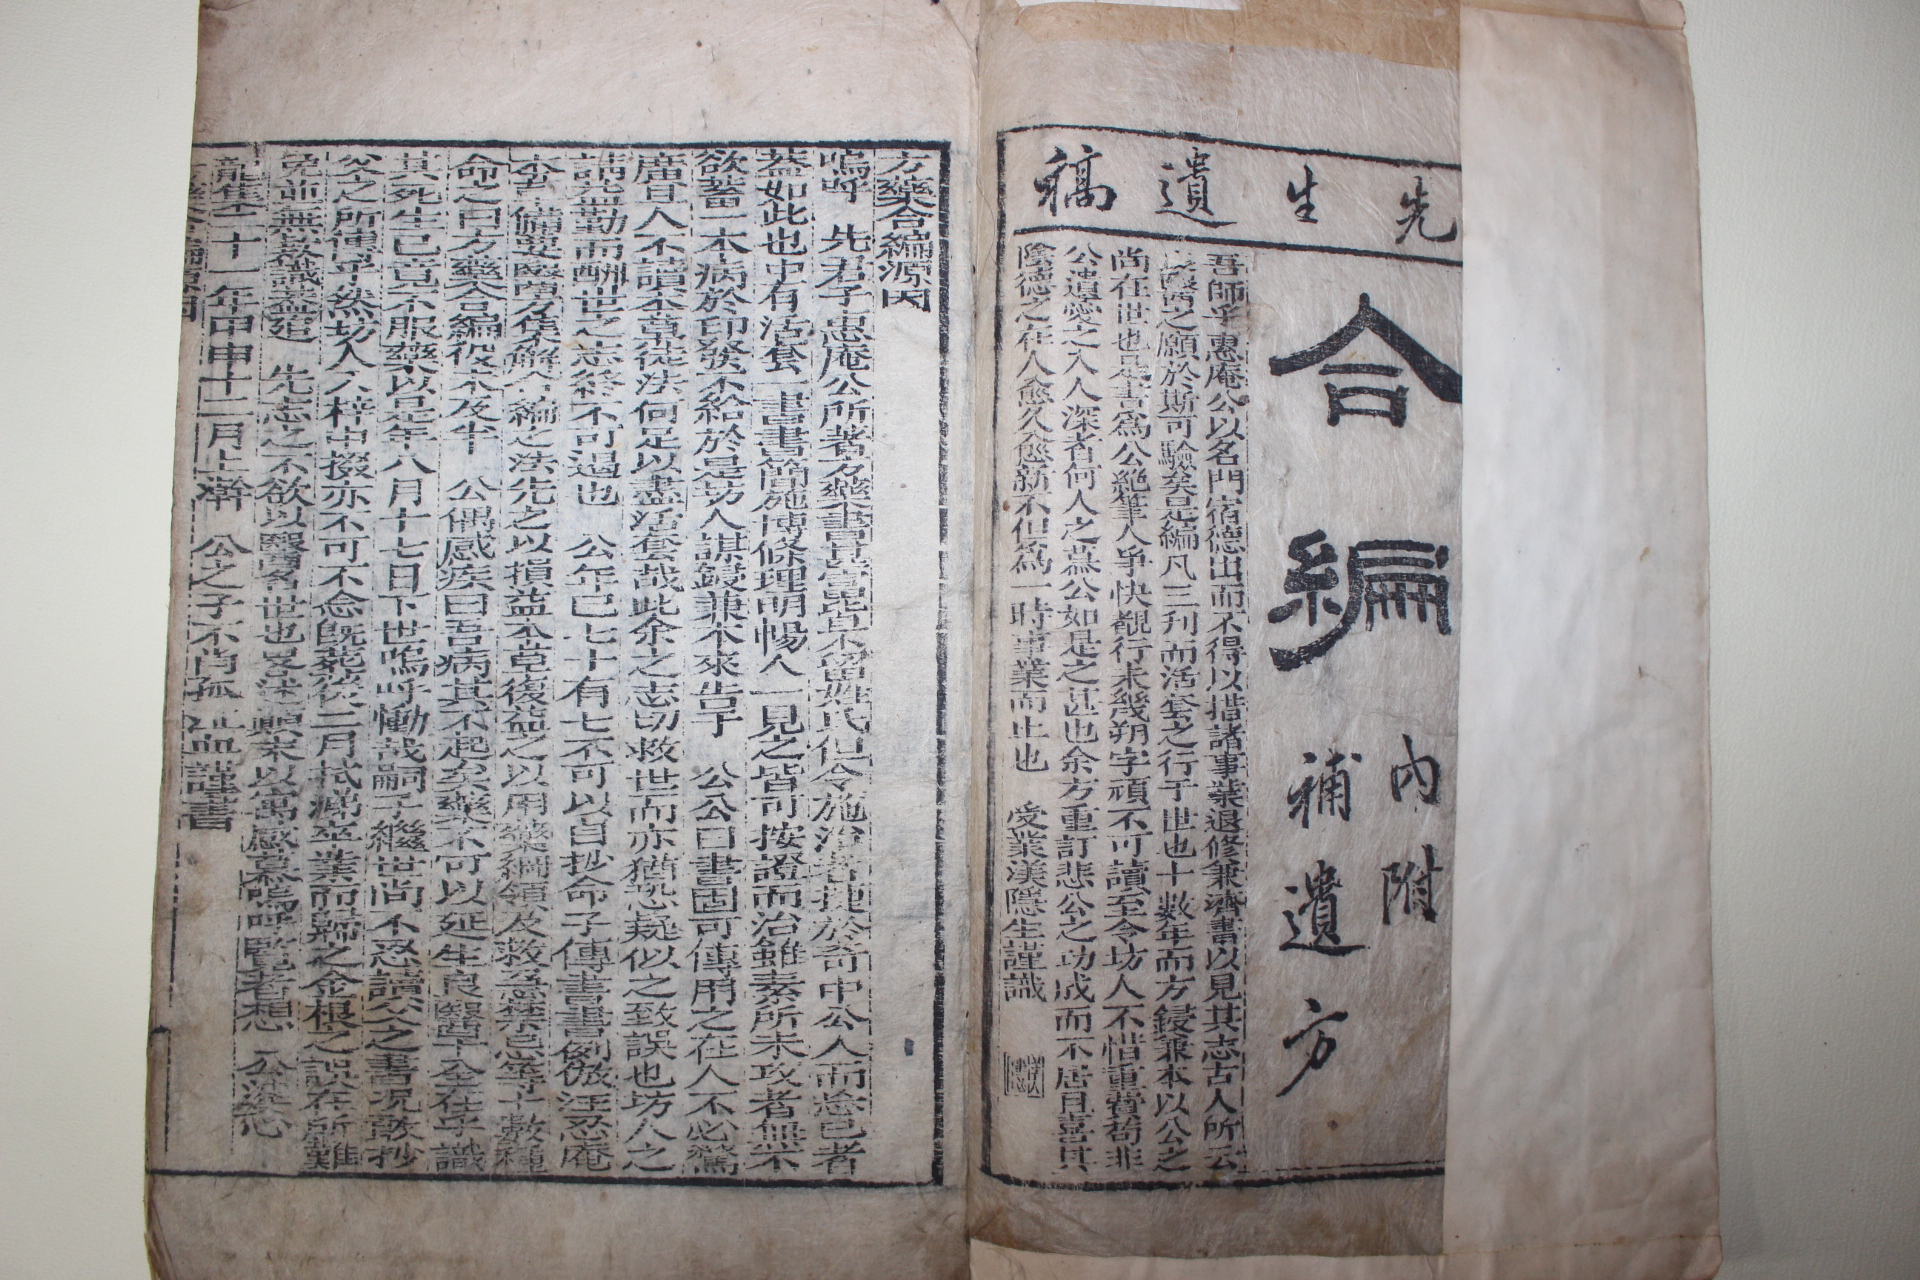 先生遺稿
合編
內附
補遺方
吾師乎惠庵公以名門宿德出而不得以措諸事業退修兼濟書以見其志古人所云
醫之願於斯可驗矣是編凡三刊而活套之行于世也十數年而方鋟兼本以公之
尚在世也是書為公絶筆人爭快覩行未幾朔字頑不可讀至今坊人不惜重費苟非
公遺愛之入人深者何人之慕公如是之甚也余方重訂悲公之功成而不居且喜其
陰德之在人愈久愈新不但為一時事業而止也　受業渼隱生謹識
方藥合編源因
嗚呼　先君子惠庵公所著方藥書皆不留姓氏但令施治者捷於奇中公人而忘己者
蓋如此也中有活套一書書簡施博條理明暢人一見之皆可按證而治雖素所未攻者無不
欲蓄一本病於印發不給於是坊人謀鋟兼本來告予　公公曰書固可傳用之在人不必驚
廣且人不讀本草徒法何足以盡活套哉此余之志切救世而亦猶恐疑似之致誤也坊人之
請益勤而酬世之志終不可遏也　公年已七十有七不可以自抄命子傳書書例倣汪忍庵
本草備要醫方集解合編之法先之以損益本草復益之以用藥綱領及救急禁忌等十數種
命之曰方藥合編役未及半　公偶感疾曰吾病其不起矣藥不可以延生良醫下全在乎識
其死生已竟不服藥以是年八月十七日下世嗚呼慟哉嗣子繼世尚不忍讀父之書况敢抄
父之所傳乎然坊人入梓中掇亦不可不念旣葬後二月拭涕卒業而歸之金根之誤在所難
免並無敍識蓋追　先志之不欲以醫名世也略述顚末以寓感慕嗚呼覽者想　公深心
龍集二十一年甲申十二月上澣　公之子不肖孤泣血謹書